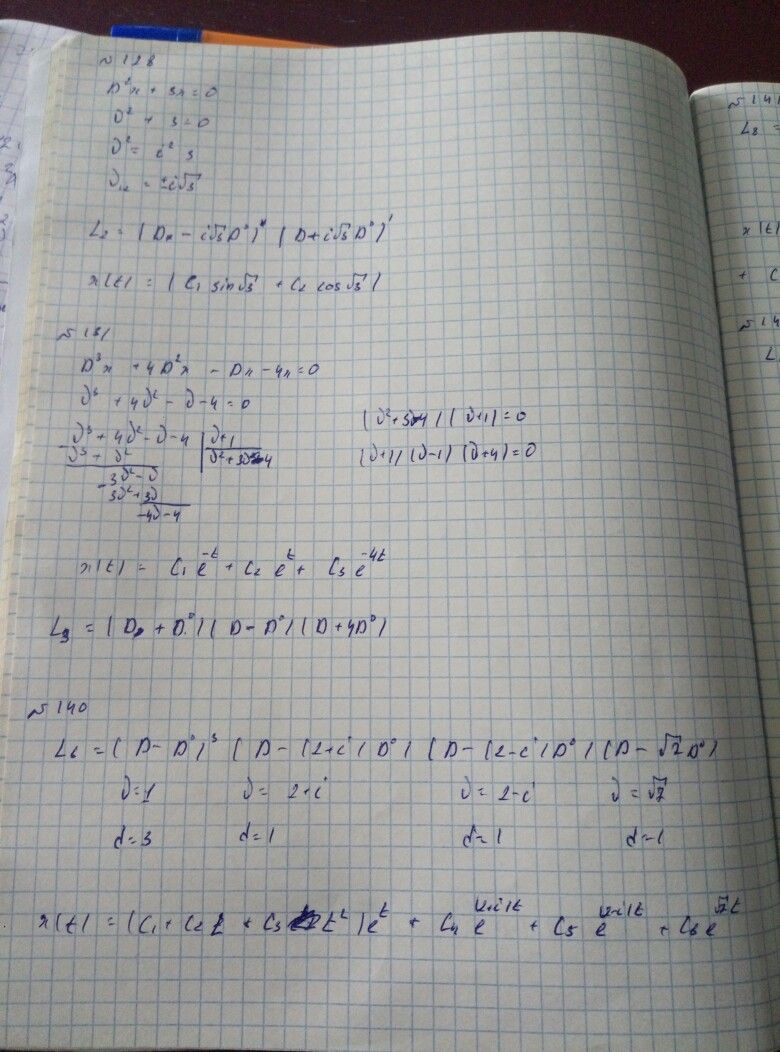 №128
D²x + 3x = 0
λ² + 3 = 0
λ² = i² 3
λ₁₂ = ±i√3
L₂ = (Dx - i√3D⁰)¹ (D + i√3D⁰)¹
x(t) = (C₁ sin√3 + C₂ cos√3)
№131
D³x + 4D²x - Dx - 4x = 0
λ³ + 4λ² - λ - 4 = 0
λ³ + 4λ² - λ - 4 | λ+1
λ³ + λ² | λ² + 3λ - 4
- 3λ² - λ
3λ² + 3λ
-4λ - 4
(λ² + 3λ - 4)(λ+1) = 0
(λ+1)(λ-1)(λ+4) = 0
x(t) = C₁e⁻ᵗ + C₂eᵗ + C₃e⁻⁴ᵗ
L₃ = (D + D⁰)(D - D⁰)(D + 4D⁰)
№140
L₆ = (D - D⁰)³ (D - (2+i)D⁰) (D - (2-i)D⁰) (D - √7D⁰)
λ=1 λ= 2+i λ= 2-i λ=√7
d=3 d=1 d=1 d=1
x(t) = (C₁ + C₂t + C₃t²)eᵗ + C₄e^(2+i)t + C₅e^(2-i)t + C₆e^√7t
№141
L₃ =
x(t)
+ C
№14
L